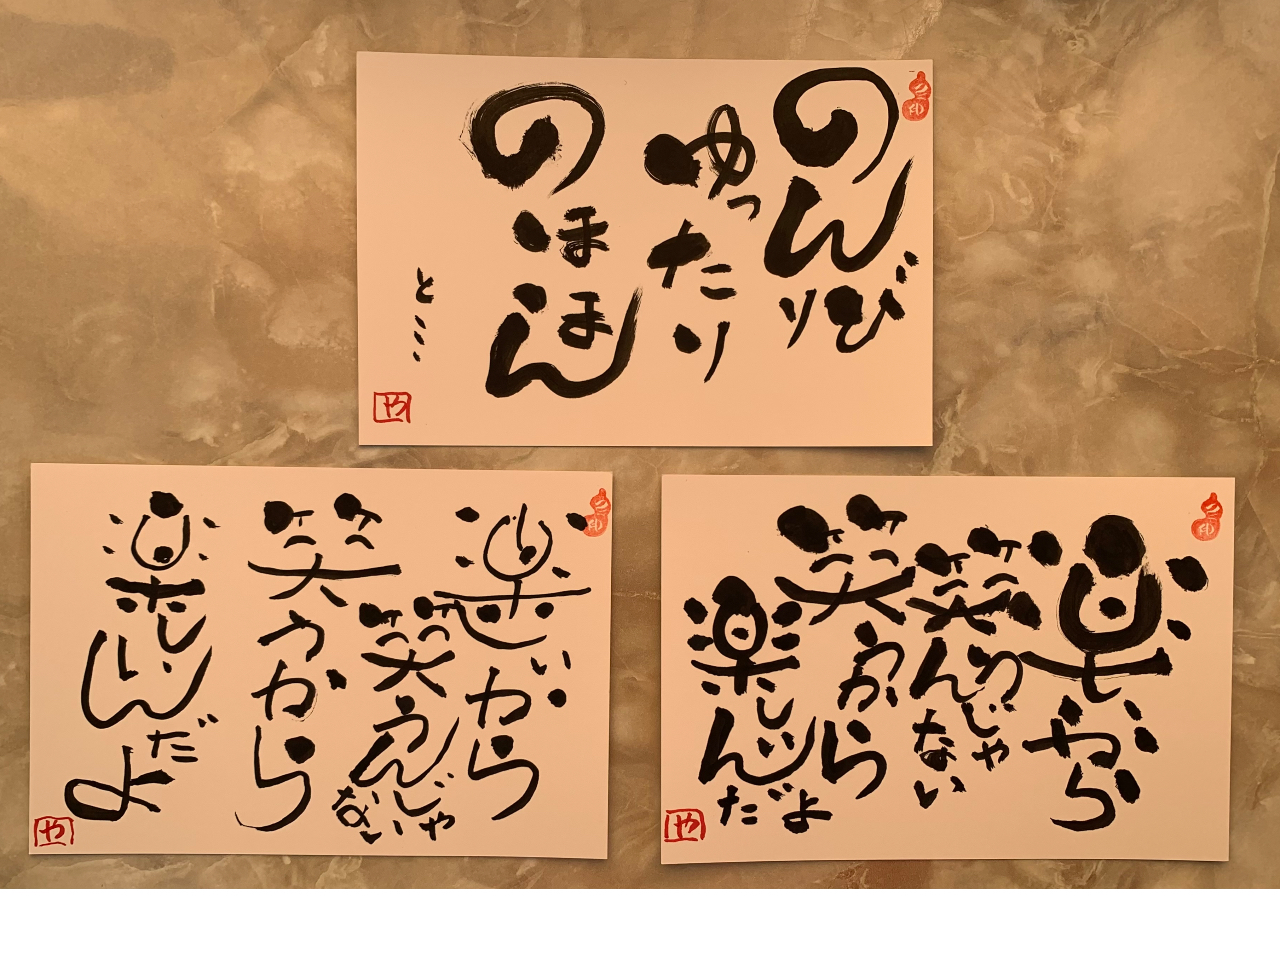 のんびり
ゆったり
のほほん
と…
や
楽しいから
笑うんじゃ
ない
笑うから
楽しいんだ
よ
や
楽しいから
笑うんじゃ
ない
笑うから
楽しいん
だよ
や